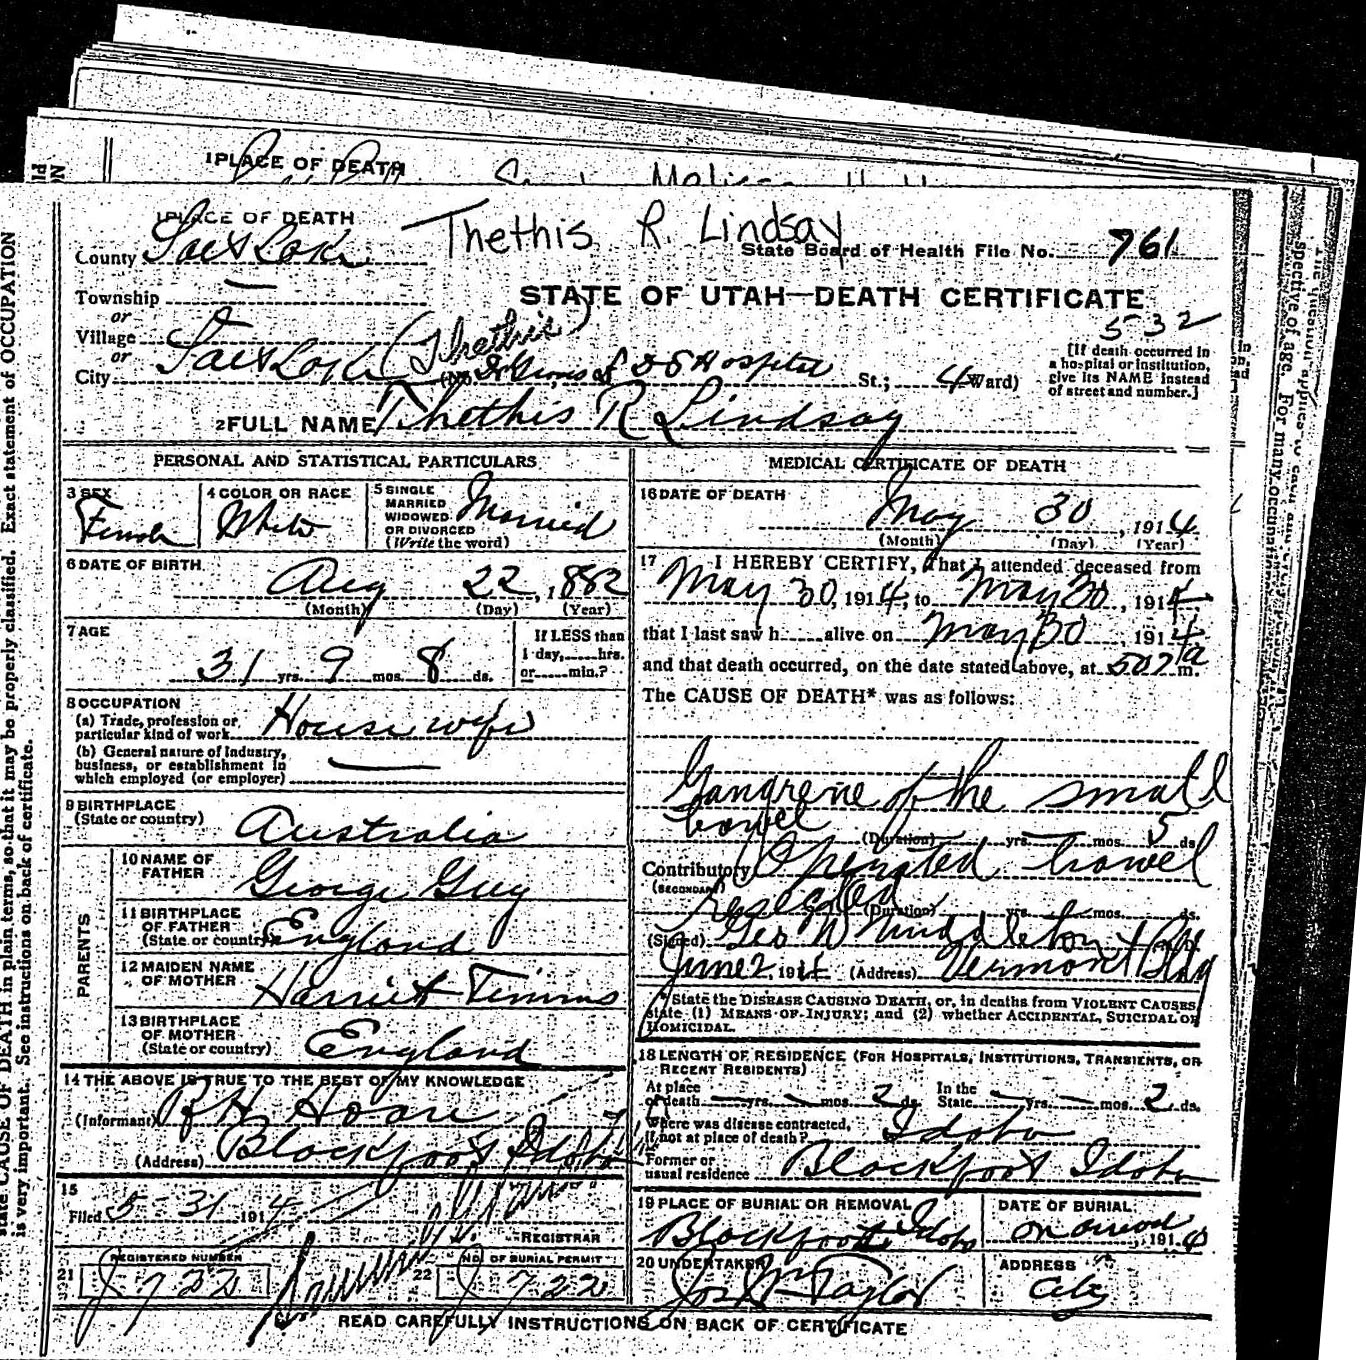 1 PLACE OF DEATH
1 PLACE OF DEATH
Thethis R. Lindsay
County Salt Lake
State Board of Health File No. 761
Township
or
STATE OF UTAH—DEATH CERTIFICATE
532
Village
or
(Thethis)
City Salt Lake (No. L D S Hospital St.; 4 Ward)
[If death occurred in
a hospital or institution,
give its NAME instead
of street and number.]
2 FULL NAME Thethis R Lindsay
PERSONAL AND STATISTICAL PARTICULARS
3 SEX
Female
4 COLOR OR RACE
White
5 SINGLE
MARRIED
WIDOWED
OR DIVORCED
(Write the word)
Married
6 DATE OF BIRTH
Aug 22, 1882
(Month) (Day) (Year)
7 AGE
31 yrs. 9 mos. 8 ds.
If LESS than
1 day,......hrs.
or......min.?
8 OCCUPATION
(a) Trade, profession or
particular kind of work
House wife
(b) General nature of industry,
business, or establishment in
which employed (or employer)
9 BIRTHPLACE
(State or country)
Australia
PARENTS
10 NAME OF
FATHER
George Guy
11 BIRTHPLACE
OF FATHER
(State or country)
England
12 MAIDEN NAME
OF MOTHER
Harriet Timms
13 BIRTHPLACE
OF MOTHER
(State or country)
England
14 THE ABOVE IS TRUE TO THE BEST OF MY KNOWLEDGE
(Informant) R H Hoare
(Address) Blackfoot Idaho
15
Filed 5-31 1914
REGISTRAR
REGISTERED NUMBER
21 J722
NO. OF BURIAL PERMIT
22 J722
MEDICAL CERTIFICATE OF DEATH
16 DATE OF DEATH
May 30, 1914
(Month) (Day) (Year)
17 I HEREBY CERTIFY, that I attended deceased from
May 30, 1914, to May 30, 1914,
that I last saw h......alive on May 30 1914
and that death occurred, on the date stated above, at 507 a m.
The CAUSE OF DEATH* was as follows:
Gangrene of the small
bowel
(Duration) yrs. mos. 5 ds.
Contributory Operated bowel
(SECONDARY)
resected
(Duration) yrs. mos. ds.
(Signed) Geo W Middleton
June 2 1914 (Address) Vermont Bldg
*State the DISEASE CAUSING DEATH, or, in deaths from VIOLENT CAUSES,
state (1) MEANS OF INJURY; and (2) whether ACCIDENTAL, SUICIDAL OR
HOMICIDAL.
18 LENGTH OF RESIDENCE (FOR HOSPITALS, INSTITUTIONS, TRANSIENTS, OR
RECENT RESIDENTS)
At place
of death yrs. mos. 2 ds.
In the
State yrs. mos. 2 ds.
Where was disease contracted,
if not at place of death?
Idaho
Former or
usual residence
Blackfoot Idaho
19 PLACE OF BURIAL OR REMOVAL
Blackfoot Idaho
DATE OF BURIAL
on arrival, 1914
20 UNDERTAKER
Jos Wm Taylor
ADDRESS
City
READ CAREFULLY INSTRUCTIONS ON BACK OF CERTIFICATE
state CAUSE OF DEATH in plain terms, so that it may be properly classified. Exact statement of OCCUPATION
is very important. See instructions on back of certificate.